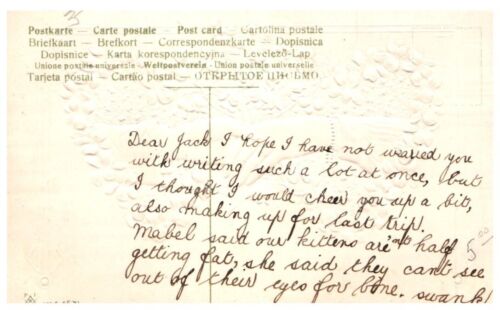 Postkarte – Carte postale – Post card – Cartolina postale
Briefkaart – Brefkort – Correspondenzkarte – Dopisnica
Dopisnice – Karta korespondencyjna – Levelező-Lap
Unione postale universale – Weltpostverein – Union postale universelle
Tarjeta postal – Cartão postal – ОТКРЫТОЕ ПИСЬМО.
Dear Jack I hope I have not wearied you
with writing such a lot at once, but
I thought I would cheer you up a bit,
also making up for last trip.
Mabel said our kittens are'nt half
getting fat, she said they can't see
out of their eyes for bone. swank!
5 00